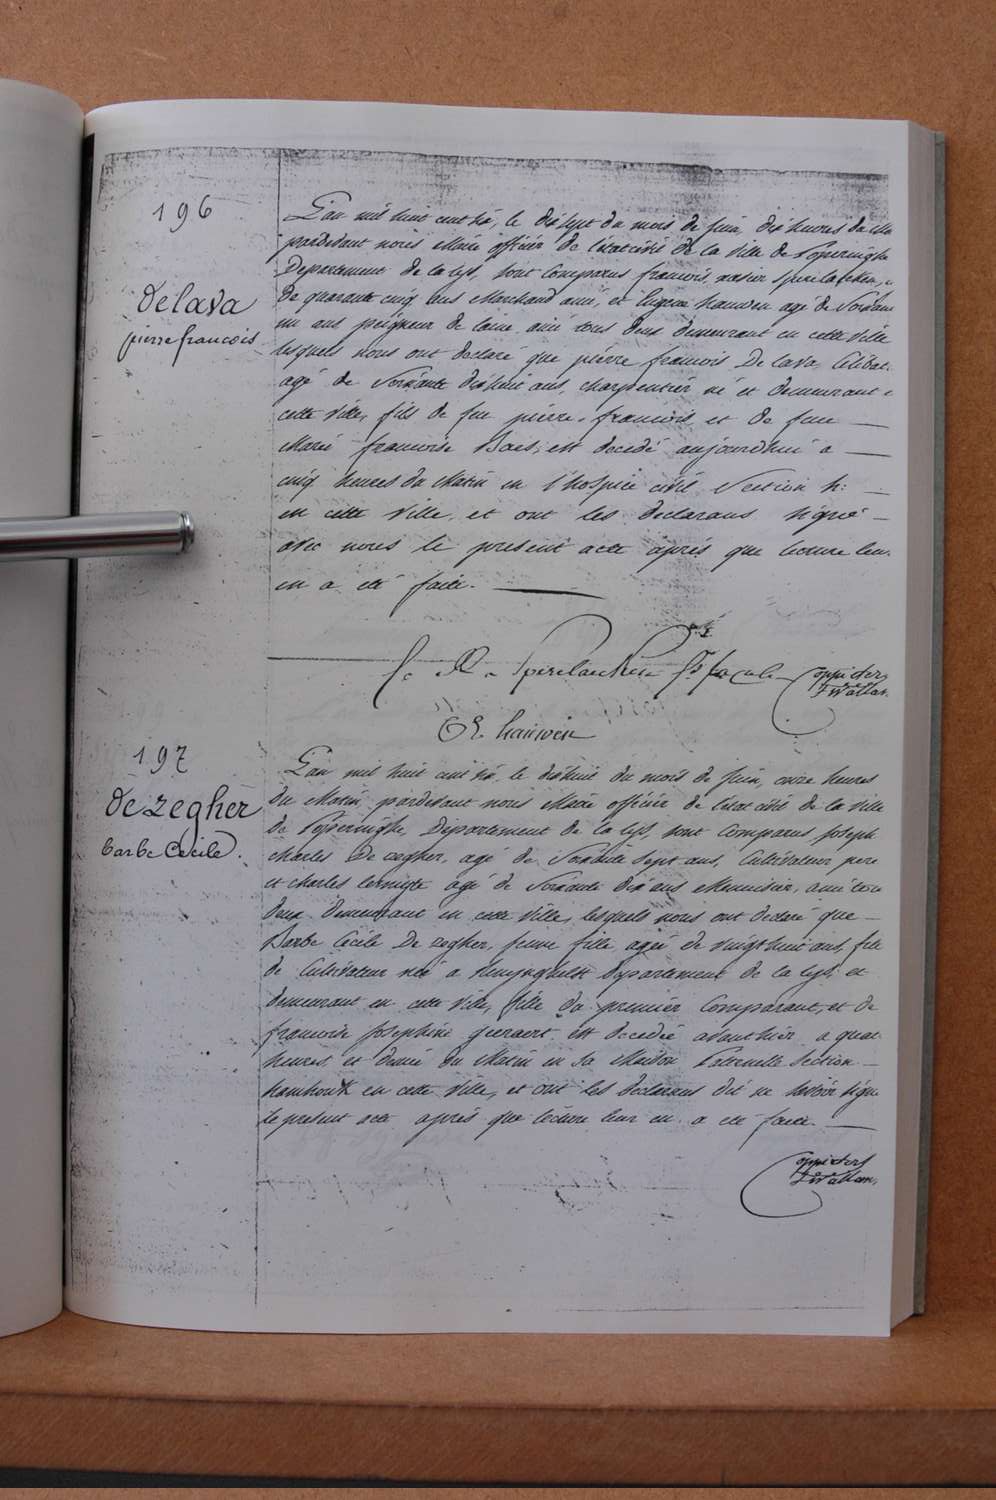 196
L'an mil huit cent dix, le dix sept du mois de juin, dix heures du
pardevant nous Maire officier de l'état civil de la ville de Poperinghe
Département de la lys, sont comparus francois
de quarante cinq ans Marchand ami, et Eugene hauwen agé de Soixante
un ans peigneur de laine ami tous deux demeurant en cette ville
delava
pierre francois
lesquels nous ont declaré que piérre francois De lava Celibat.
agé de Soixante dixhuit ans, charpentiér né et demeurant
cette ville, fils de feu piérre francois et de feue
Marie francoise Baes, est decedé aujourdhui a
cinq heures du Matin en l'hospice civil Section h:
en cette ville, et ont les declarans signé
avec nous le present acte aprés que lecture leur
en a été faite.
E hauwen
197
L'an mil huit cent dix, le dixhuit du mois de juin, onze heures
du Matin, pardevant nous Maire officiér de l'état civil de la ville
de Poperinghe, Département de la lys, sont comparus joseph
de zeghér
barbe Cécile.
charles De zegher, agé de Soixante Sept ans, Cultivateur pere
et charles agé de Soixante dix ans Menuisier, ami
deux demeurant en cette ville, lesquels nous ont declaré que
Barbe Cécile De zegher, jeune fille agée de vingt huit ans, fille
de Cultivateur née a Département de la lys et
demeurant en cette ville, fille du premier Comparant, et de
francoise josephine est decedée avanthier a quatre
heures et demie du Matin en sa Maison Paternelle Section
en cette ville, et ont les declarans dit ne savoir signer
le present acte aprés que lecture leur en a été faite.